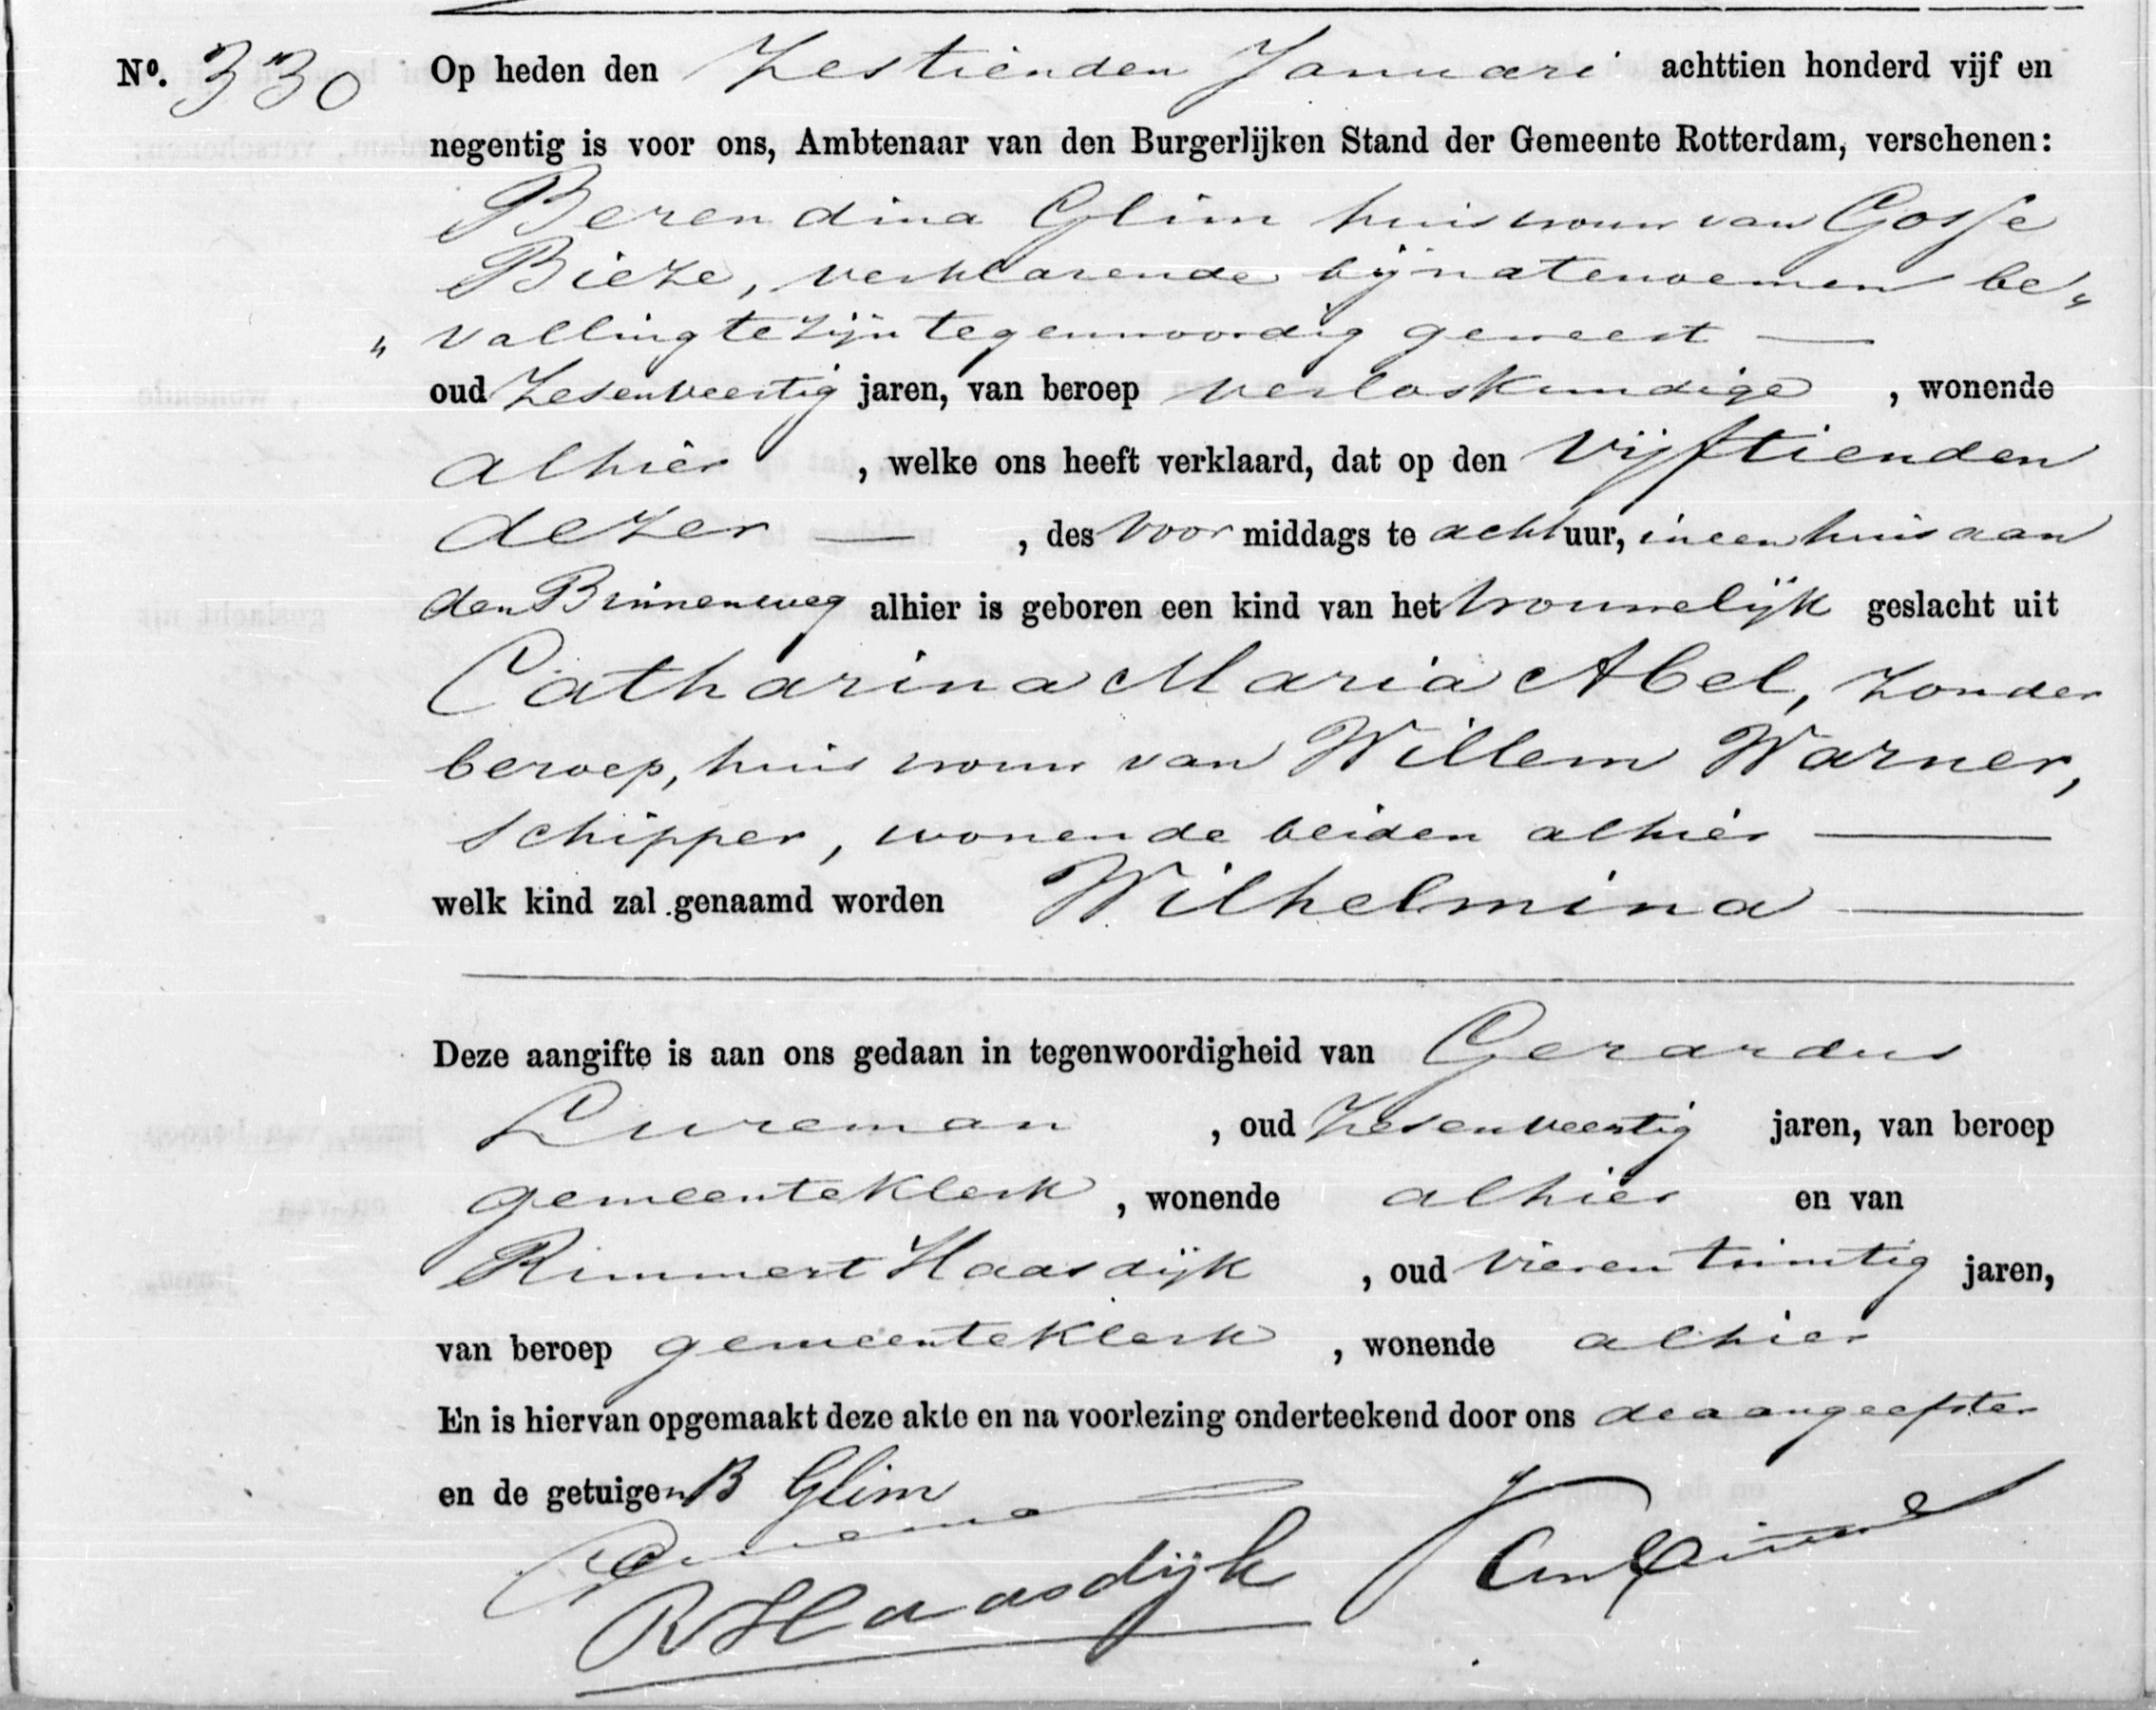 Nº. 330 Op heden den Zestienden Januari achttien honderd vijf en
negentig is voor ons, Ambtenaar van den Burgerlijken Stand der Gemeente Rotterdam, verschenen:
Berendina Glim huisvrouw van Gosse
Bieze, verklarende bij na te noemen be„
„vallingtezijn tegenwoordig geweest —
oud Zesenveertig jaren, van beroep verloskundige , wonende
alhier , welke ons heeft verklaard, dat op den Vijftienden
dezer — , des Voor middags te acht uur, in een huis aan
den Binnenweg alhier is geboren een kind van het Vrouwelijk geslacht uit
Catharina Maria Abel, zonder
beroep, huisvrouw van Willem Warner,
schipper, wonende beiden alhier —
welk kind zal genaamd worden Wilhelmina —
Deze aangifte is aan ons gedaan in tegenwoordigheid van Gerardus
Lureman , oud Zesenveertig jaren, van beroep
gemeenteklerk , wonende alhier en van
Rimmert Haasdijk , oud Vierentwintig jaren,
van beroep gemeenteklerk , wonende alhier
En is hiervan opgemaakt deze akte en na voorlezing onderteekend door ons de aangeefster
en de getuigen B Glim
RHaasdijk